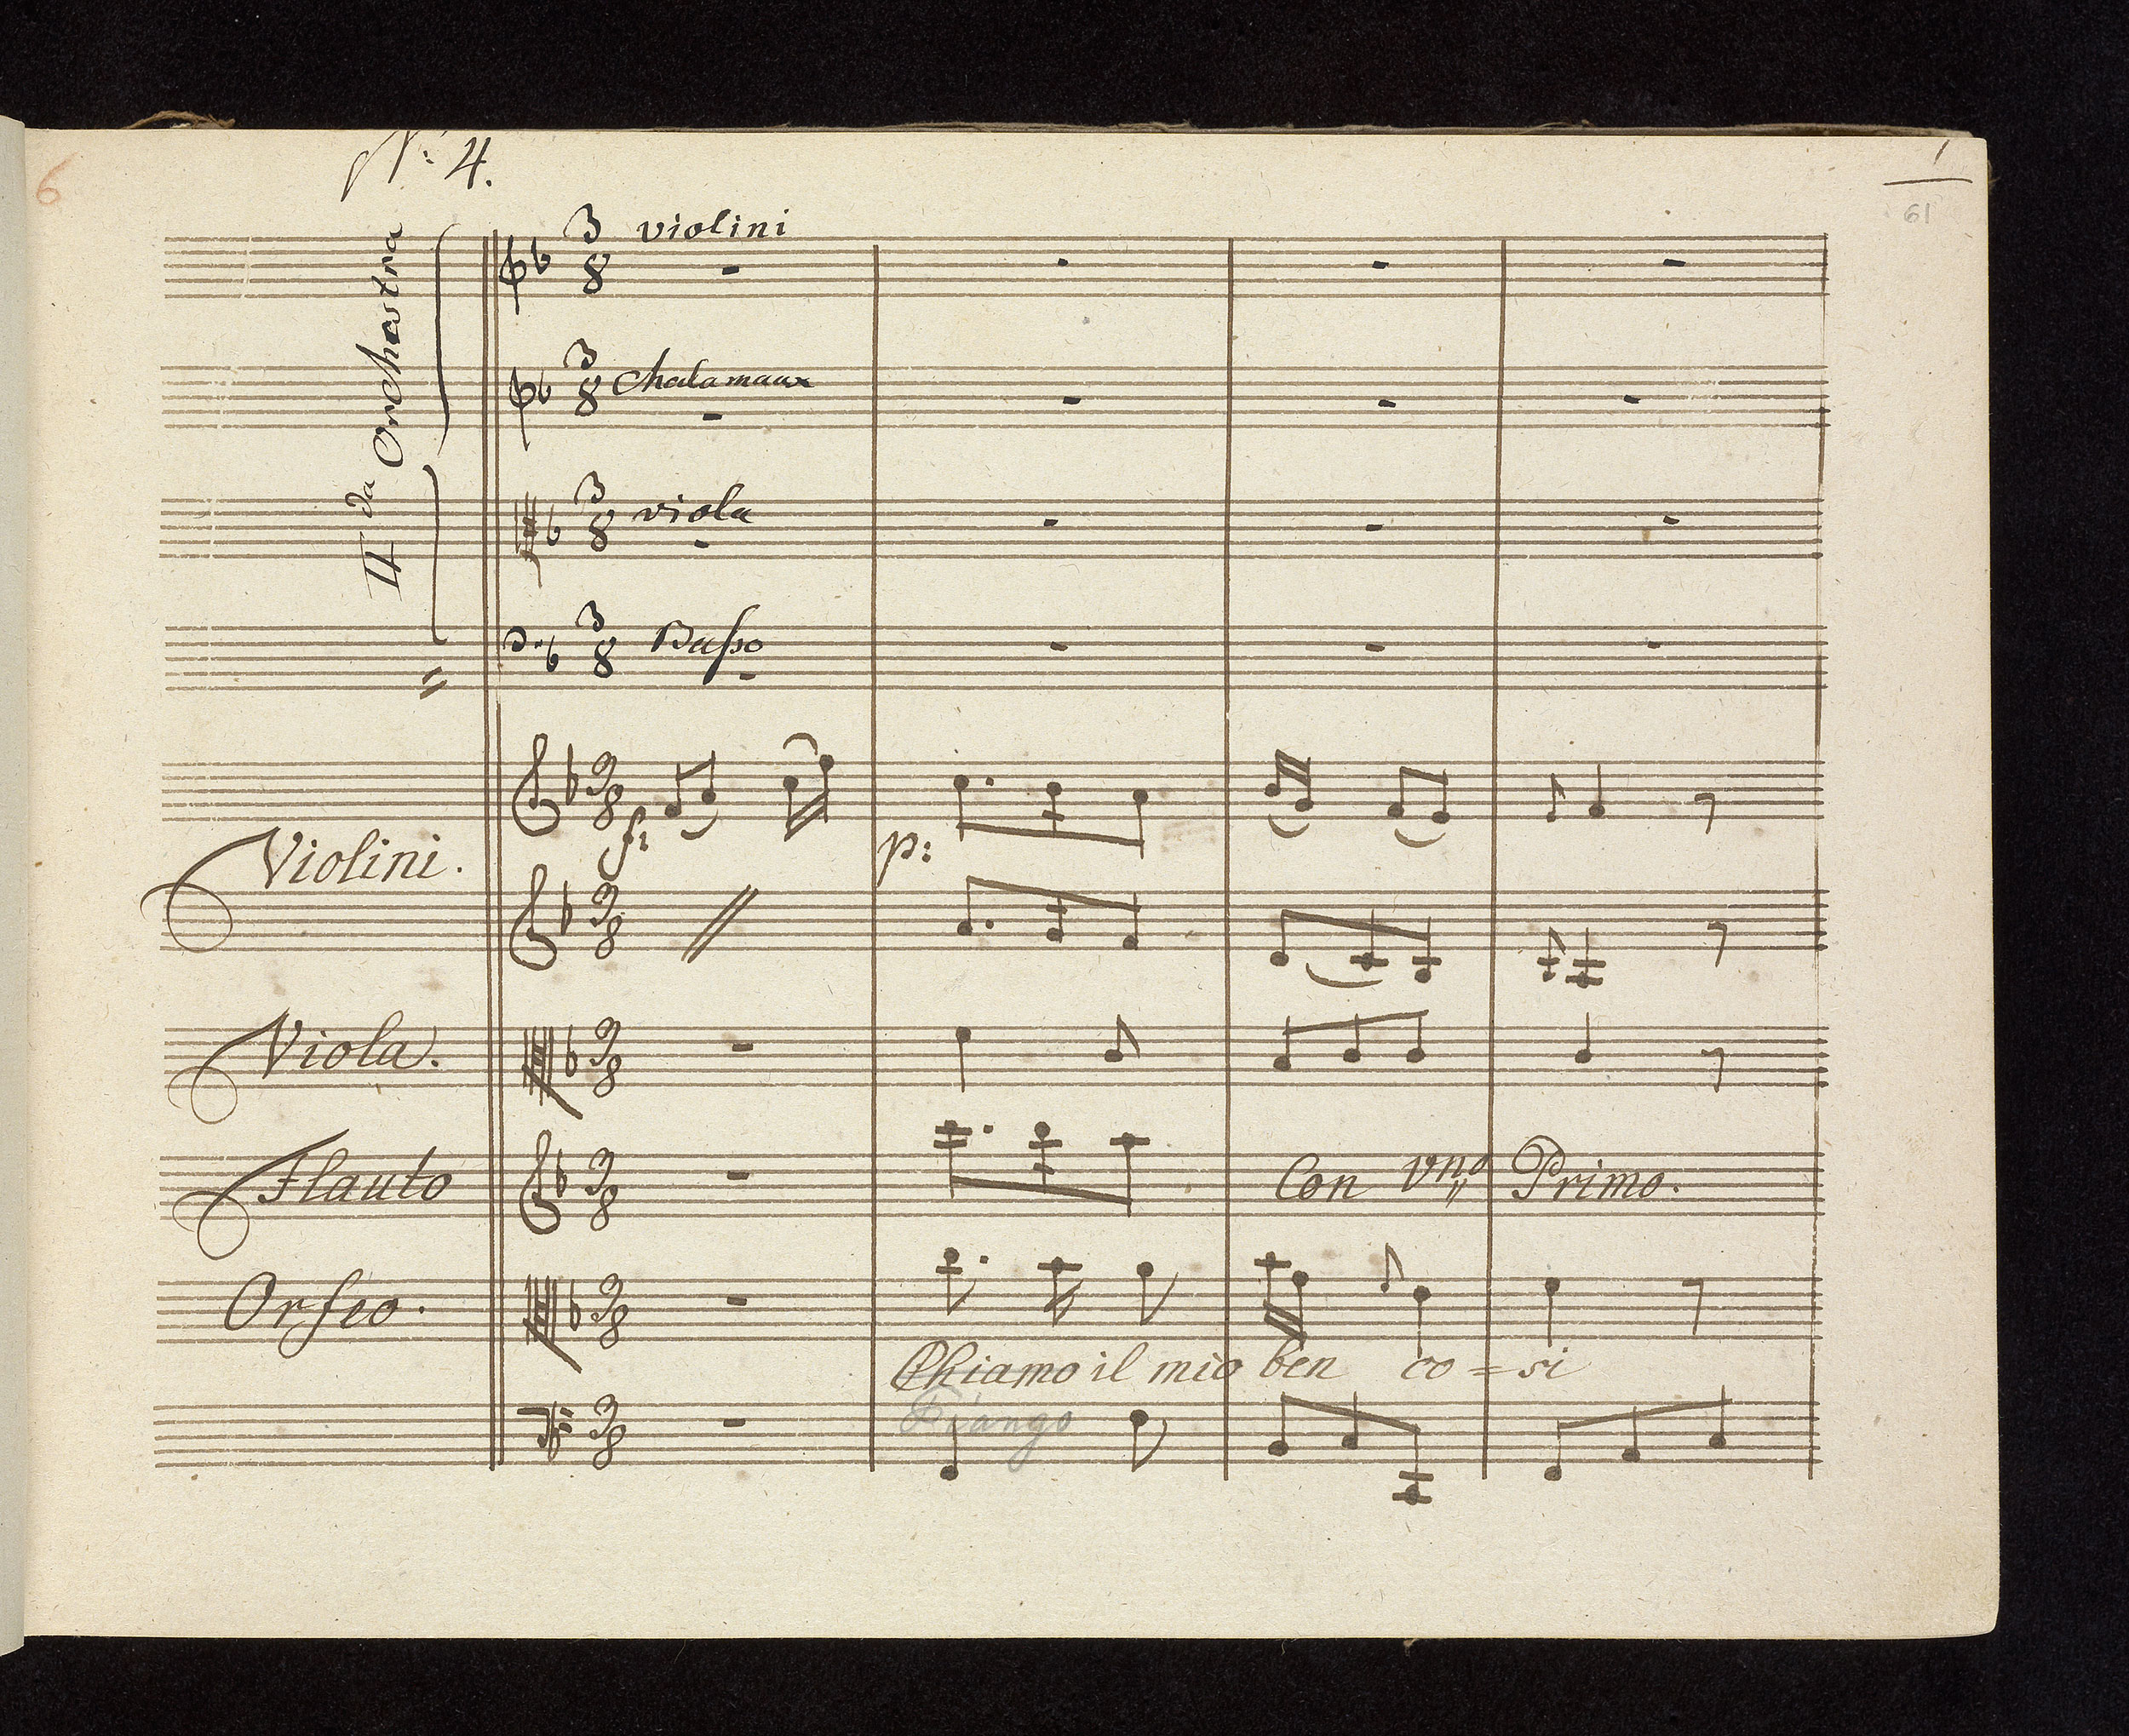 6
N: 4.
1
61
IIda Orchestra
violini
3
8
Chalamaux
3
8
viola
3
8
Basso
3
8
Violini.
3
8
f:
p:
3
8
Viola.
3
8
Flauto
3
8
Con vno Primo.
Orfeo.
3
8
Chiamo il mio ben co=si
Piango
3
8